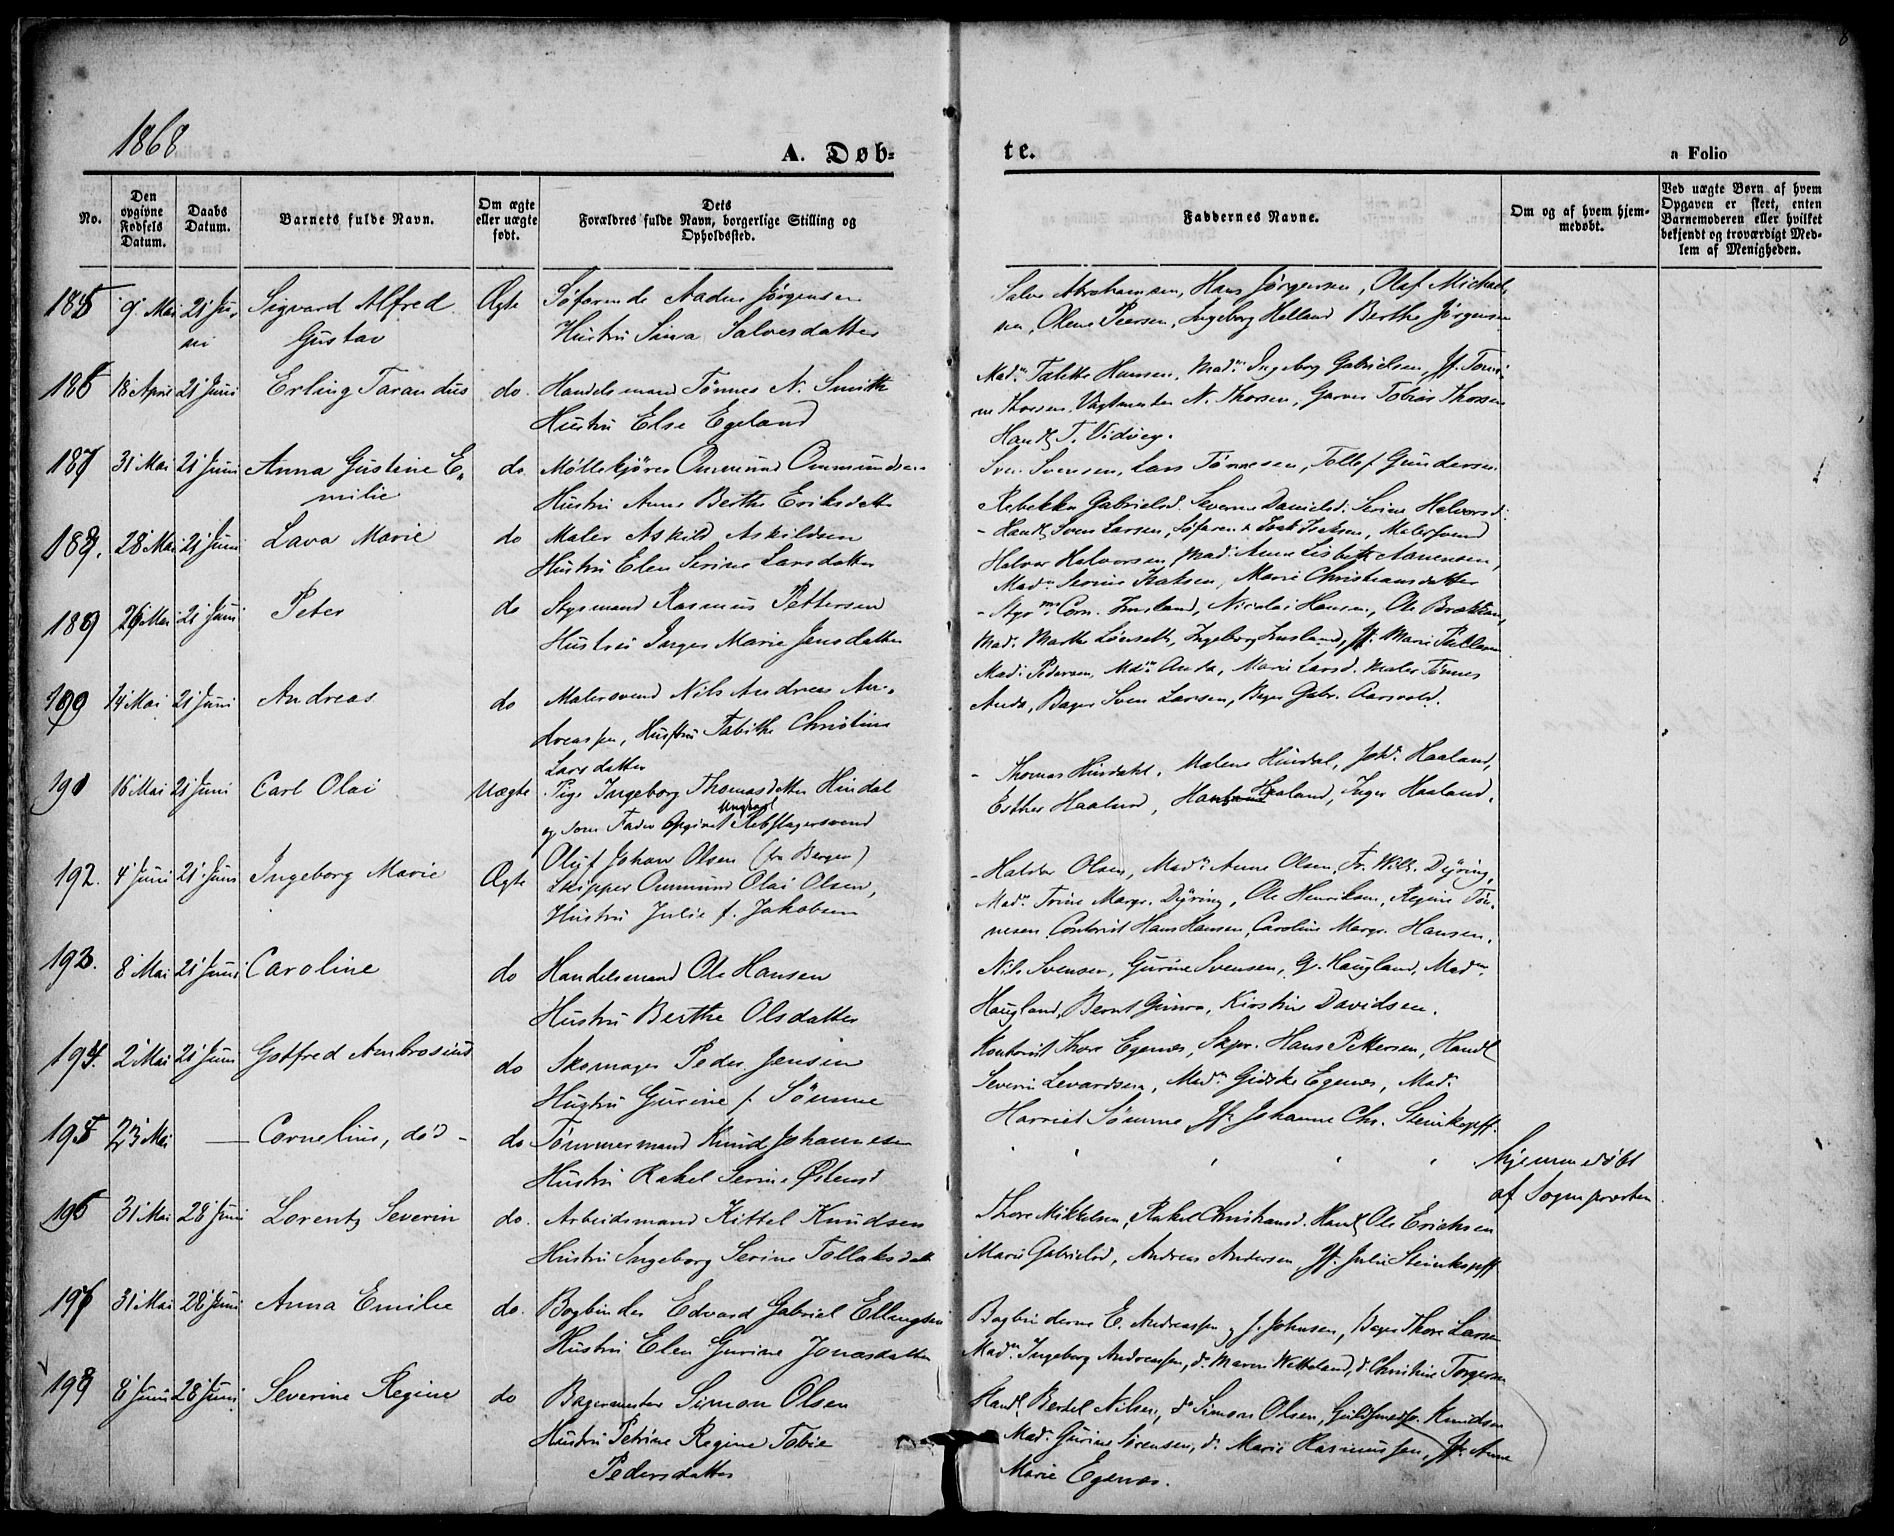 1868
A. Døb=
te.
a Folio
No.
Den opgivne Fødsels Datum.
Daabs Datum.
Barnets fulde Navn.
Om ægte eller uægte født.
Dets Forældres fulde Navn, borgerlige Stilling og Opholdssted.
Faddernes Navne.
Om og af hvem hjemmedøbt.
Ved uægte Børn af hvem Opgaven er skeet, enten Barnemoderen eller hvilket bekjendt og troværdigt Medlem af Menigheden.
185 9 Mai 21 Ju- Sigvard Alfred Ægte Søfarende Aadne Jørgensen
ni Gustav Hustru Sina Salvesdatter
Salve Abrahamsen, Hans Jørgensen, Olaf Michael-
sen, Olene Peersen, Ingeborg Helland Berthe Jørgensen
186 18 April 21 Juni Erling Tarandus do. Handelsmand Tønnes N. Smith
Hustru Else Egeland
Madm Talette Hansen, Madm Ingeborg Gabrielsen, Jf.
N. Thorsen, Garver Tobias Thorsen
Handl T. Vidvey.
187 31 Mai 21 Juni Anna Gustine E- do. Møllekjører Ommund Ommundsen
milie Hustru Anne Berthe Eriksdatter
Sven Svensen, Lars Tønnesen, Tollef Gundersen
Rebekka Gabrielsd. Severine Danielsd. Serine Halvorsd.
188. 28 Mai 21 Juni Lava Marie do Maler Askild Askildsen
Hustru Elen Serine Larsdatter
Handl Sven Larsen, Søfarende Isak Isaksen, Malersvend
Halvor Halvorsen, Mad. Anne Lisbeth Aanensen,
Madm Serine Isaksen, Marie Christiansdatter
189 26 Mai 21 Juni Peter do Styrmand Rasmus Pettersen
Hustru Inger Marie Jensdatter
Styrm. Corn. Imsland, Nicolai Hansen, Ole Brekken,
Mad. Marthe, Ingeborg Imsland, Jf. Marie
190 14 Mai 21 Juni Andreas do Malersvend Nils Andreas An-
dreassen, Hustru Tabithe Christine
Larsdatter
Mad. Pedersen, Madm Anda, Marie Larsd. Maler Tønnes
Anda, Bager Sven Larsen, Bager Gabr. Aarsvold.
191 16 Mai 21 Juni Carl Olai Uægte Pige Ingeborg Thomasdatter Hindal
og som Fader Opgivet Ungkarl Rebslagersvend
Oluf Johan Olsen (fra Bergen)
Thomas Hindahl, Malene Hindal, Joh. Haaland,
Esther Haaland, Haaland, Inger Haaland.
192. 4 Juni 21 Juni Ingeborg Marie Ægte Skipper Ommund Olai Olsen,
Hustru Julie f. Jakobsen
Haldor Olsen, Madm Anne Olsen, Fr. Wilh. Dyring,
Madm Trine Margr. Dyring, Ole Henriksen, Regine Tøn-
nesen. Contorist Hans Hansen, Caroline Margr. Hansen.
193. 8 Mai 21 Juni Caroline do Handelsmand Ole Hansen
Hustru Berthe Olsdatter
Nils Svensen, Gurine Svensen, G. Haugland, Madm
Haugland, Bernt Gimra, Kirstine Davidsen.
194. 2 Mai 21 Juni Gotfred Ambrosius do Skomager Peder Jensen
Hustru Gurine f. Sømme
Kontorist Thore Egenæs, Skpr. Hans Pettersen, Handl
Severin Levardsen, Madm Gidske Egenæs, Mad.
Harriet Sømme, Jf. Johanne Chr. Steinkopff.
195 23 Mai — Cornelius, død - do Tømmermand Knud Johannesen
Hustru Rakel Serine Ølend
hjemmedøbt
af Sognepræsten
196 31 Mai 28 Juni Lorentz Severin do. Arbeidsmand Kittel Knudsen
Hustru Ingeborg Serine Tollaksdatt
Thore Mikkelsen, Rakel Christiansd. Handl Ole Erichsen
Marie Gabrielsd, Andreas Andersen, Jf. Julie Steinkopff
197 31 Mai 28 Juni Anna Emilie do. Bogbinder Edvard Gabriel Ellingsen
Hustru Elen Gurine Jonasdatter
Bogbinderne E. Andreassen og J. Johnsen, Bager Thore Larsen
Madm Ingeborg Andreassen, do Maren Wetteland, do Christine Torgersen
198 6 Juni 28 Juni Severine Regine do Bagermester Simon Olsen
Hustru Petrine Regine Tobie
Pedersdatter
Handl. Bertel Nilsen, do Simon Olsen, Guldsmedsv. Knudsen
Mad. Gurine Sørensen, do Marie Rasmussen, Jf. Anne
Marie Egenæs.